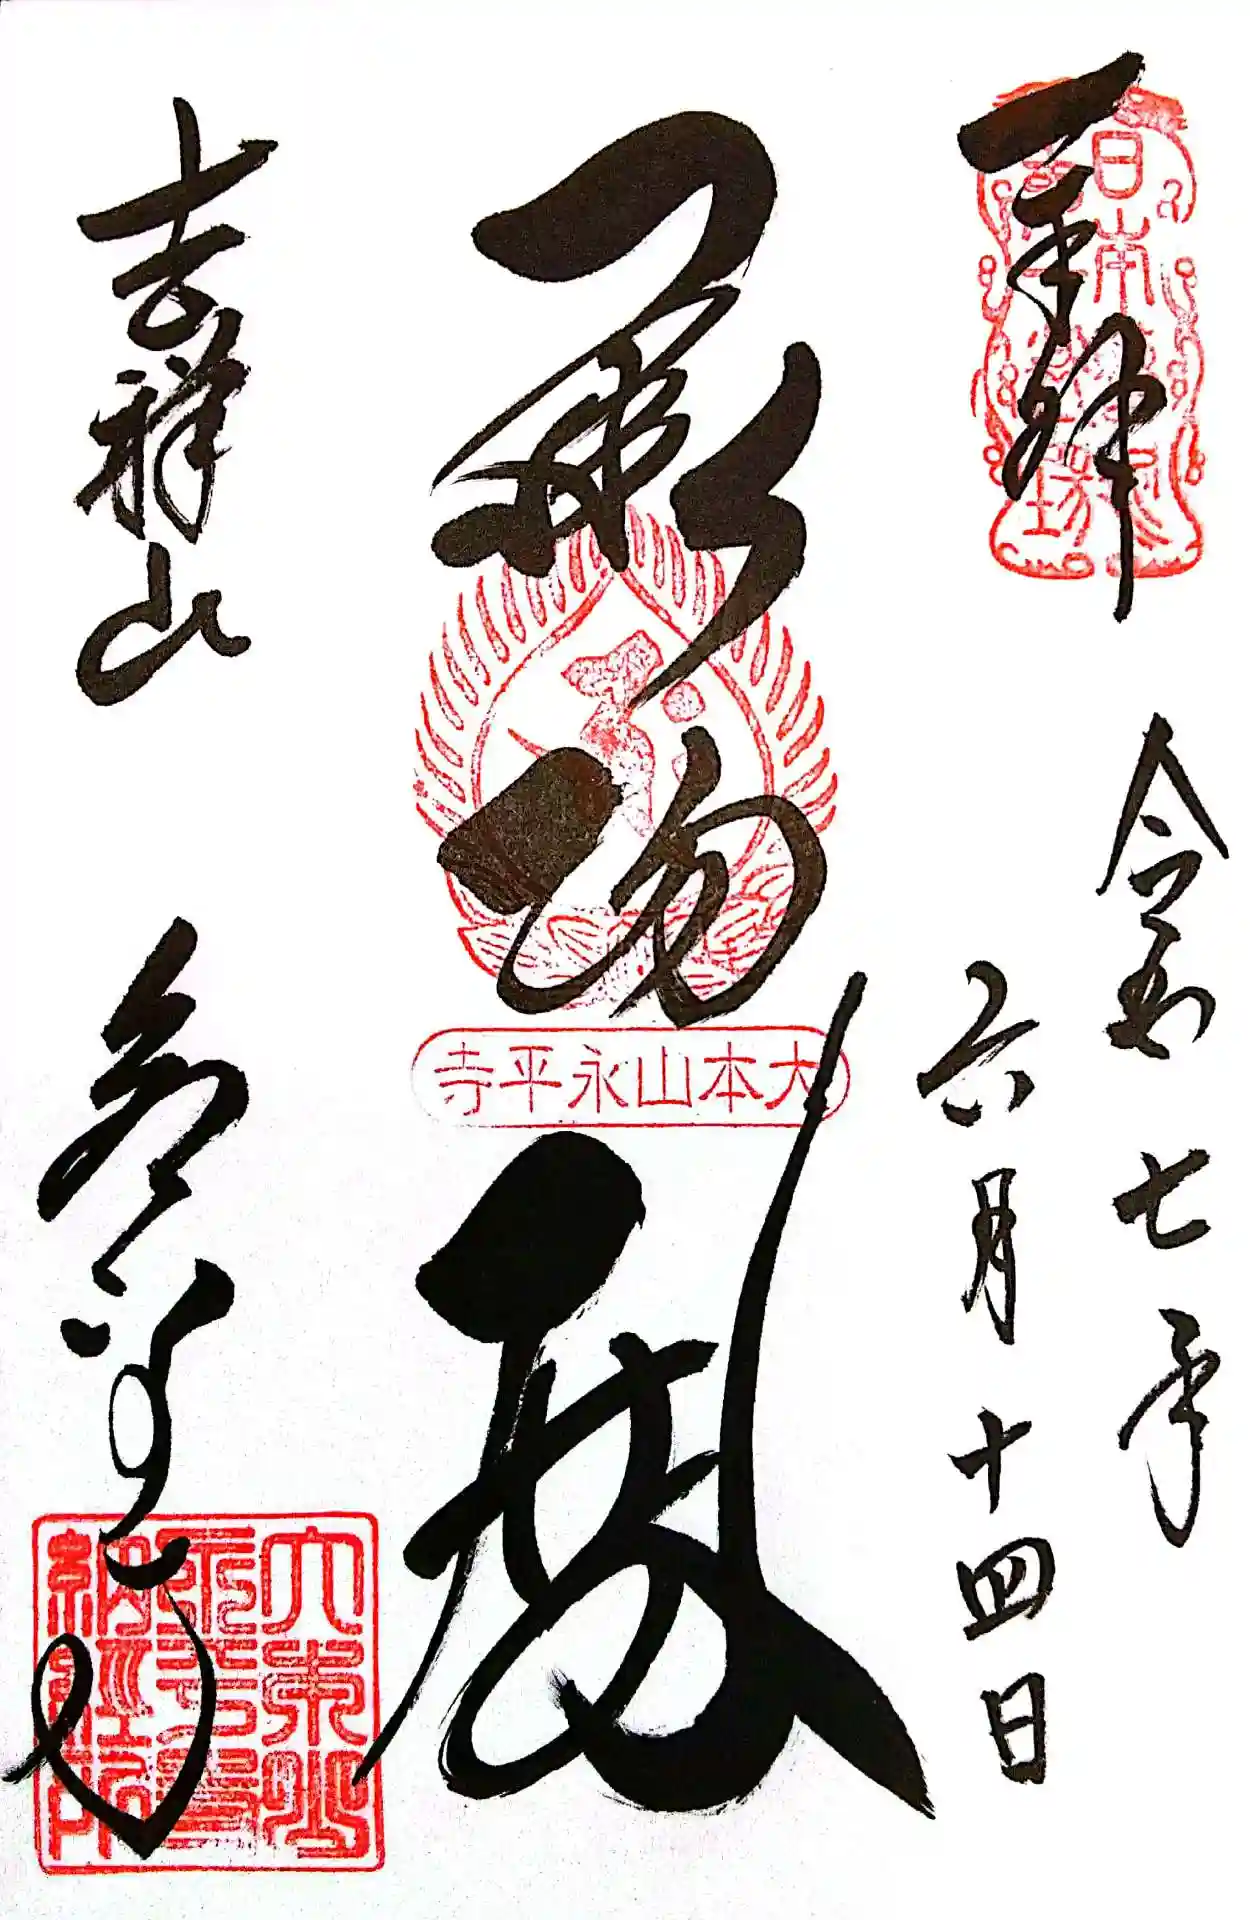 奉拝
令和七年
六月十四日
承陽殿
大本山永平寺
吉祥山
永平寺
大本山
永平寺
納経所